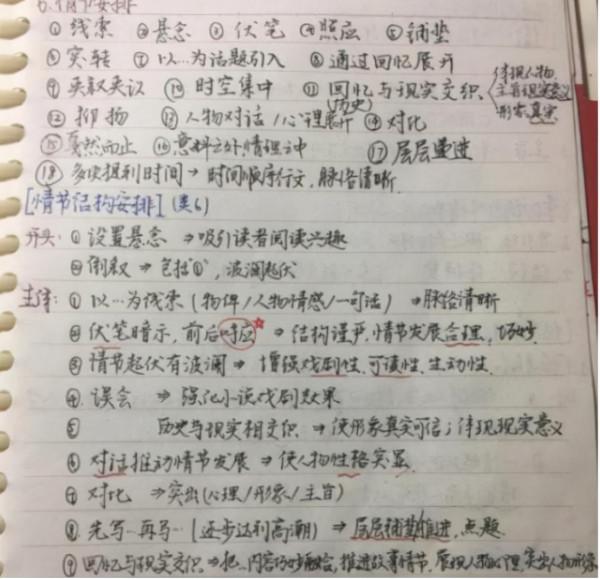 6.情节安排
①线索 ②悬念 ③伏笔 ④照应 ⑤铺垫
⑥突转 ⑦以…为话题引入 ⑧通过回忆展开
⑨夹叙夹议 ⑩时空集中 ⑪回忆与现实交织 体现人物
(历史) 主旨现实意义
形象真实
⑫抑扬 ⑬人物对话/心理展开 ⑭对比
⑮戛然而止 ⑯意料之外情理之中 ⑰层层递进
⑱多次提到时间→时间顺序行文,脉络清晰.
[情节结构安排](类6)
开头:①设置悬念 ⇒吸引读者阅读兴趣
②倒叙 ⇒ 包括①,波澜起伏
主体:①以…为线索(物件/人物情感/一句话) ⇒脉络清晰
②伏笔暗示,前后呼应 ⇒结构严谨,情节发展合理,巧妙
③情节起伏有波澜 ⇒ 增强戏剧性,可读性,生动性.
④误会 ⇒强化小说戏剧效果
⑤ 历史与现实相交织 ⇒使形象真实可信;体现现实意义
⑥对话推动情节发展 ⇒使人物性格突显.
⑦对比 ⇒突出(心理/形象/主旨)
⑧先写…再写…(逐步达到高潮) ⇒层层铺垫推进,点题.
⑨回忆与现实交织⇒把,内容巧妙融合,推进故事情节,展现人物心理,突出人物形象